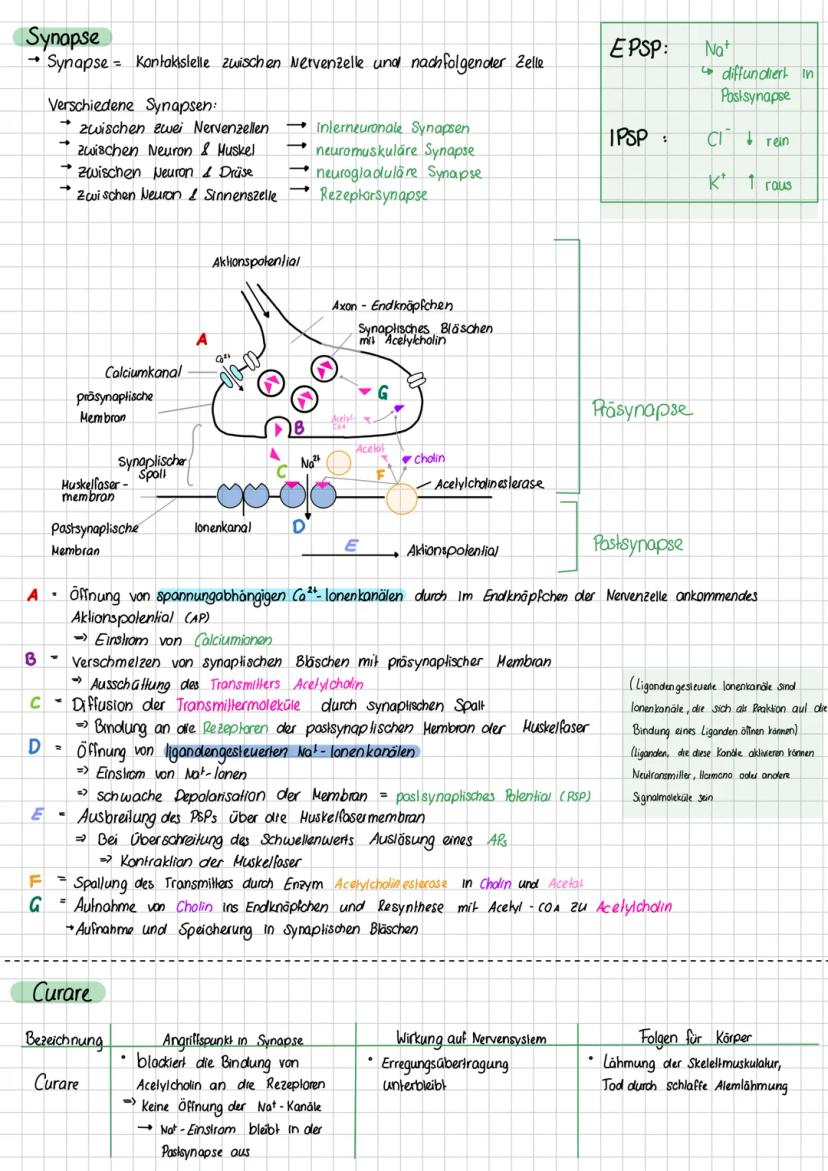 Synapse
→ Synapse = Kontaktstelle zwischen Nervenzelle und nachfolgender Zelle
Verschiedene Synapsen:
→ zwischen zwei Nervenzellen → interneuronale Synapsen
→ zwischen Neuron & Muskel → neuromuskuläre Synapse
→ zwischen Neuron & Drüse → neurogladuläre Synapse
→ zwischen Neuron & Sinnenszelle → Rezeptorsynapse
EPSP: Na⁺
↳ diffundiert in
Postsynapse
IPSP : Cl⁻ ↓ rein
K⁺ ↑ raus
Aktionspotential
Axon - Endknöpfchen
Synaptisches Bläschen
mit Acetylcholin
A
Ca²⁺
Calciumkanal
präsynaptische
Membran
G
Acetyl-
CoA
B
Präsynapse
Synaptischer
Spalt
Na²⁺
Acetat
Cholin
C
F
Muskelfaser -
membran
Acetylcholineslerase
Postsynaptische
Membran
Ionenkanal
D
E
Aktionspotential
Postsynapse
A = Öffnung von spannungabhängigen Ca²⁺-Ionenkanälen durch im Endknöpfchen der Nervenzelle ankommendes
Aktionspotential (AP)
⇒ Einstrom von Calciumionen
B = Verschmelzen von synaptischen Bläschen mit präsynaptischer Membran
⇒ Ausschüttung des Transmitters Acetylcholin
C = Diffusion der Transmittermoleküle durch synaptischen Spalt
⇒ Bindung an die Rezeptoren der postsynaptischen Membran der Muskelfaser
D = Öffnung von ligandengesteuerten Na⁺-Ionenkanälen
⇒ Einstrom von Na⁺-Ionen
⇒ schwache Depolarisation der Membran = postsynaptisches Potential (PSP)
E = Ausbreitung des PSPs über die Muskelfasermembran
⇒ Bei Überschreitung des Schwellenwerts Auslösung eines APs
⇒ Kontraktion der Muskelfaser
F = Spaltung des Transmitters durch Enzym Acetylcholinesterase in Cholin und Acetat
G = Aufnahme von Cholin ins Endknöpfchen und Resynthese mit Acetyl - COA zu Acetylcholin
→ Aufnahme und Speicherung in synaptischen Bläschen
(Ligandengesteuerte Ionenkanäle sind
Ionenkanäle, die sich als Reaktion auf die
Bindung eines Liganden öffnen können)
(liganden, die diese Kanäle aktivieren können
Neutronsmitter, Hormone oder andere
Signalmoleküle sein
Curare
Bezeichnung Angriffspunkt in Synapse Wirkung auf Nervensystem Folgen für Körper
Curare
• blockiert die Bindung von
Acetylcholin an die Rezeptoren
⇒ Keine Öffnung der Na⁺-Kanäle
→ Na⁺-Einstrom bleibt in der
Postsynapse aus
• Erregungsübertragung
unterbleibt
• Lähmung der Skelettmuskulatur,
Tod durch schlaffe Atemlähmung